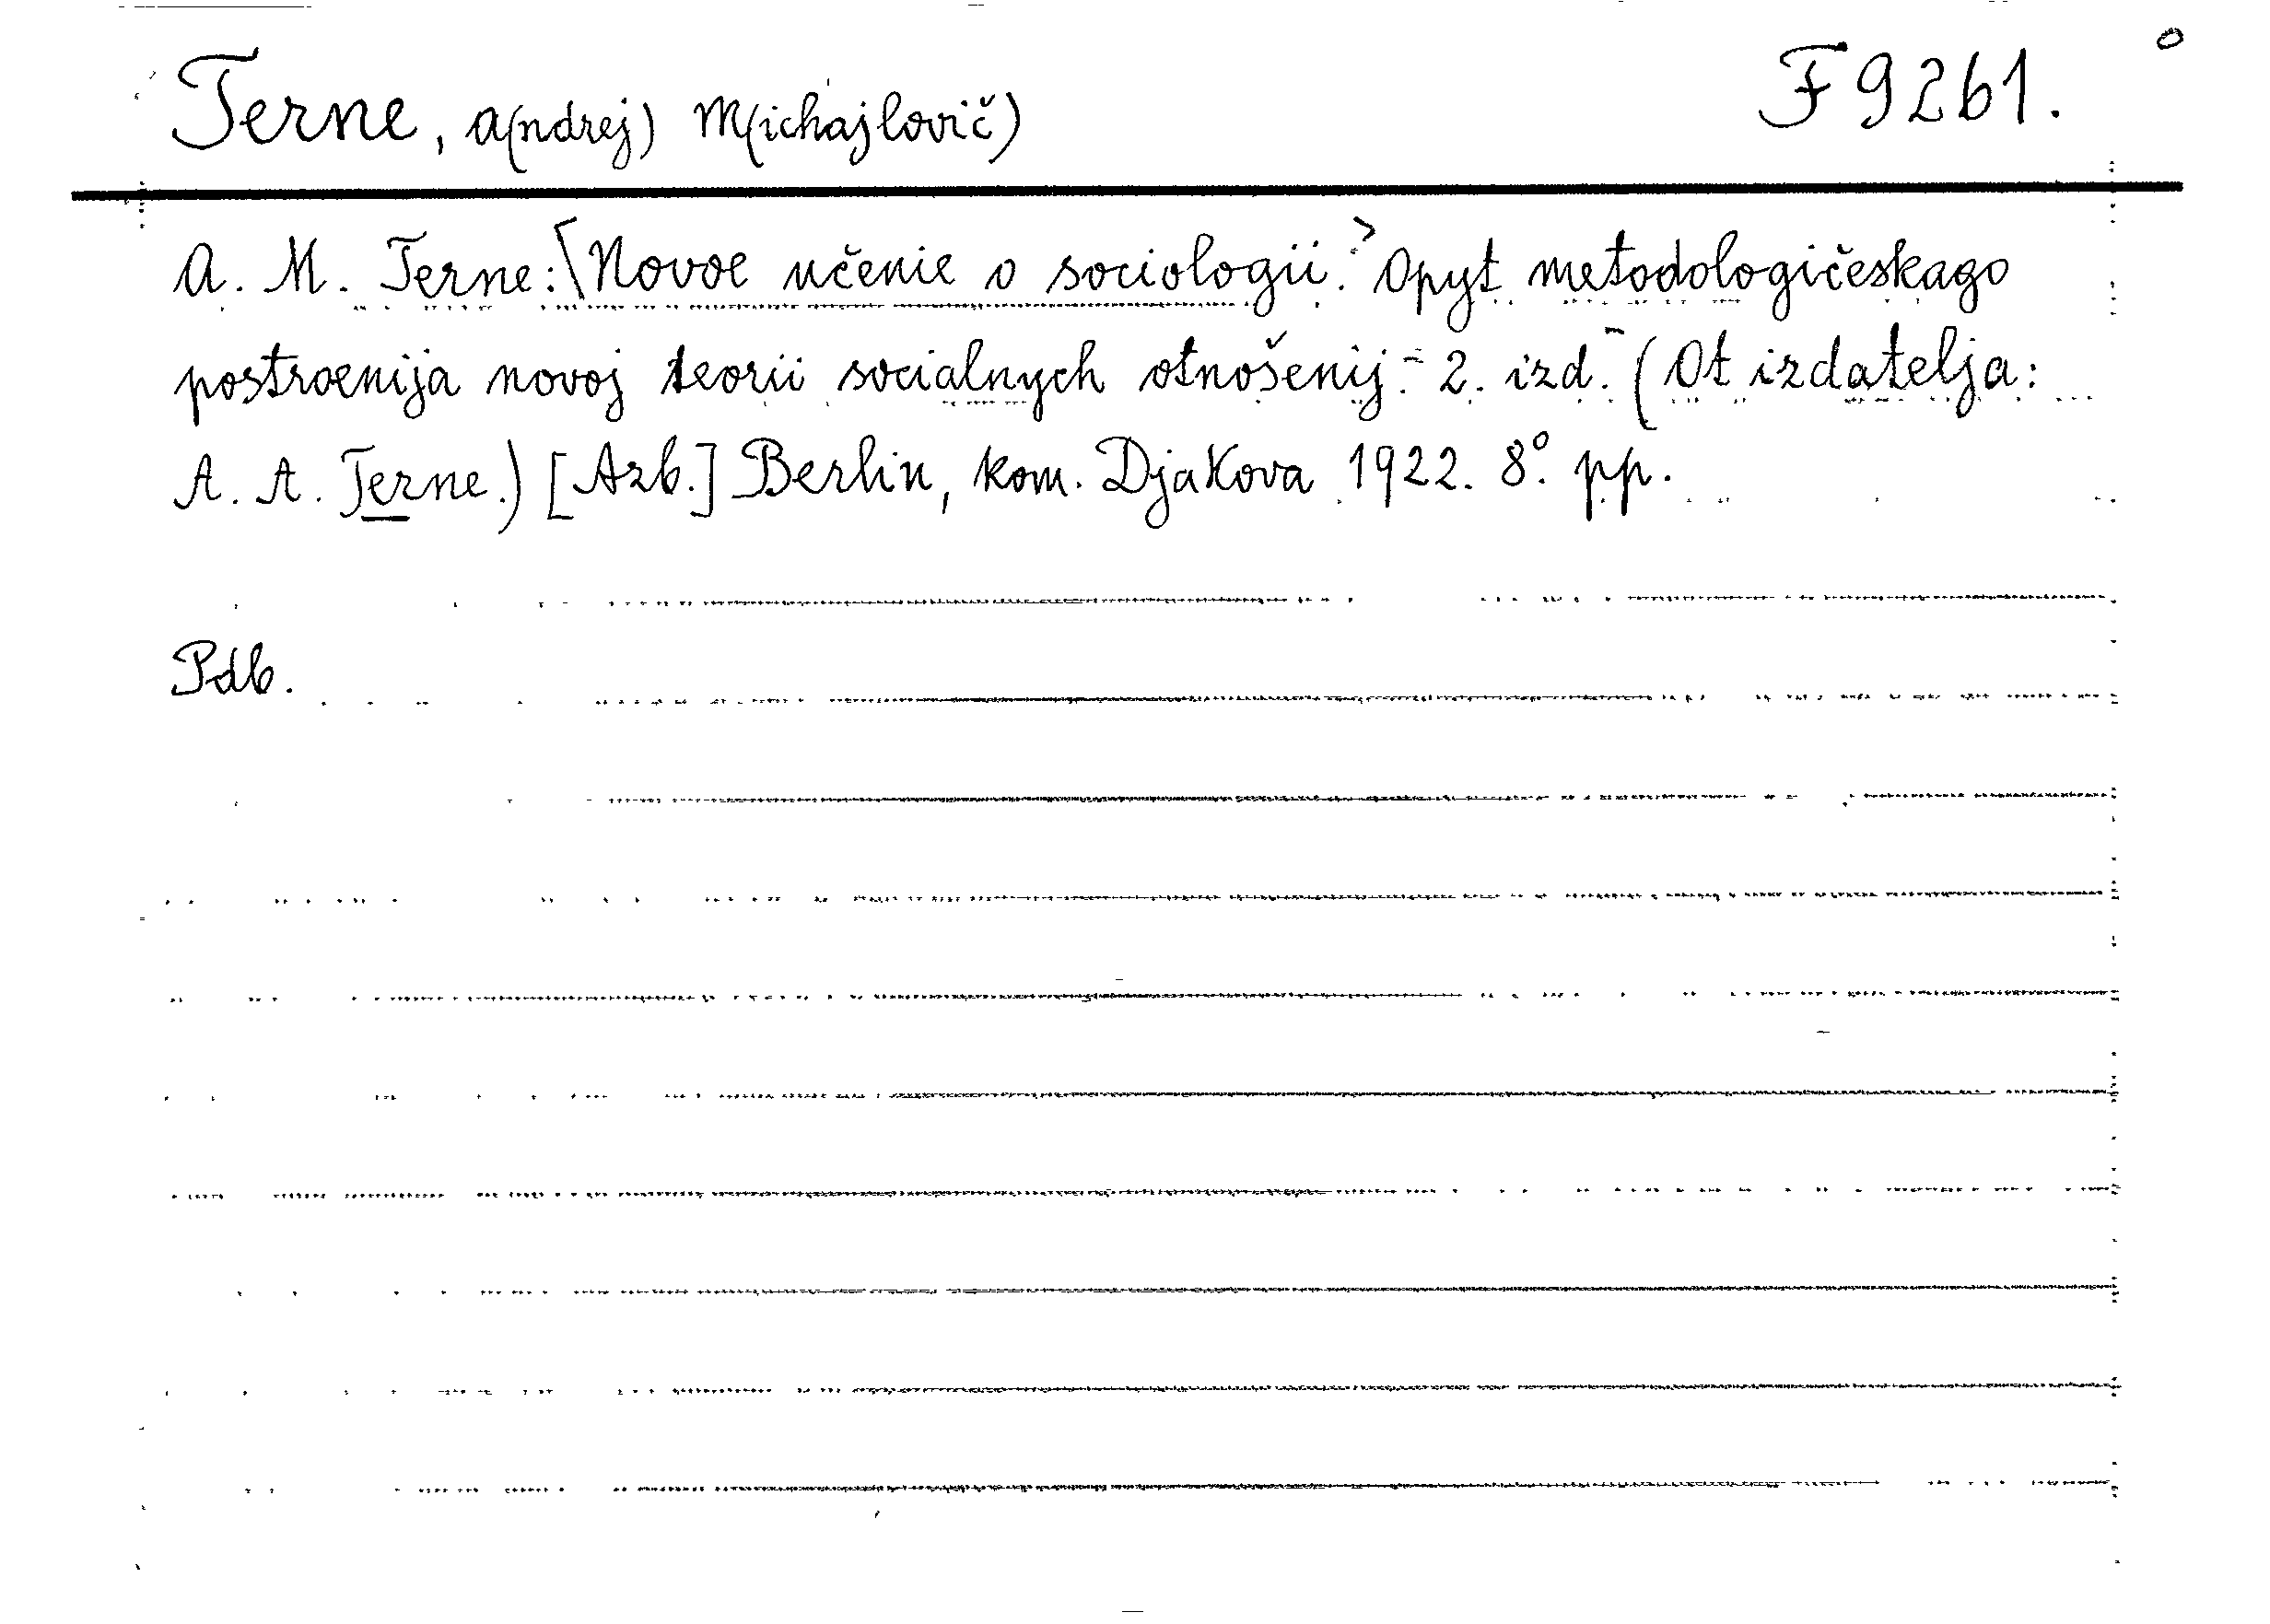 Terne, A(ndrej) M(ichajlovič) F 9261.
A. M. Terne: Novoe učenie o sociologii. Opyt metodologičeskago
postroenija novoj teorii socialnych otnošenij. - 2. izd. - (Ot izdatelja:
A. A. Terne.) [Azb.] Berlin, kom. Djakova 1922. 8°. pp.
Pdb.